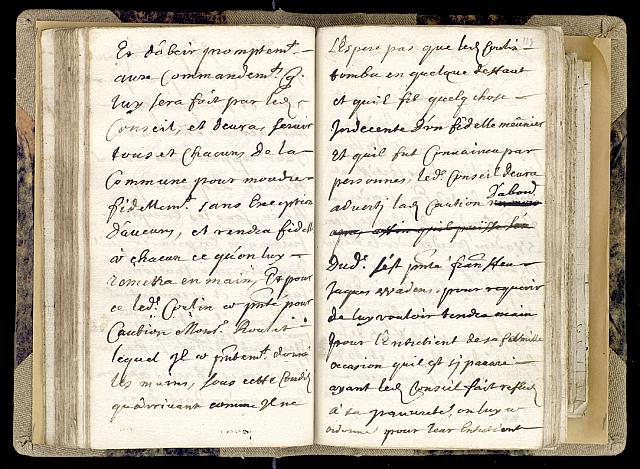 Et d'obeir promptemt.
aux Commandemts. q.
luy sera fait par led.
Conseil, et devra servir
tous et Chacuns de la
Commune pour moudre
fidellemt. sans Exception
d'aucuns, et rendra fidell
à chacun ce qu'on luy
remettra en main, Et pour
ce led. Coutin a pnté pour
Caution Monsr.
lequel Il a pntemt. donné
les mains, sous cette Condit
qu'arrivant comme Il ne
l'Espere pas que led. Coutin
tomba en quelque deffaut
et qu'il fit quelq. chose
Indecente d'un fidelle meunier
et qu'il fut Convaincu par
personnes, led. Conseil devra
advertir lad. Caution D'abord
Dud. S'est pnté
Jaques pour requerir
de luy vouloir tendre main
pour l'Entretient de sa famille
occasion qu'il est sy pauvre
ayant led. Conseil fait reflect
à sa pauvreté, on luy a
ordonné pour leur Entretient